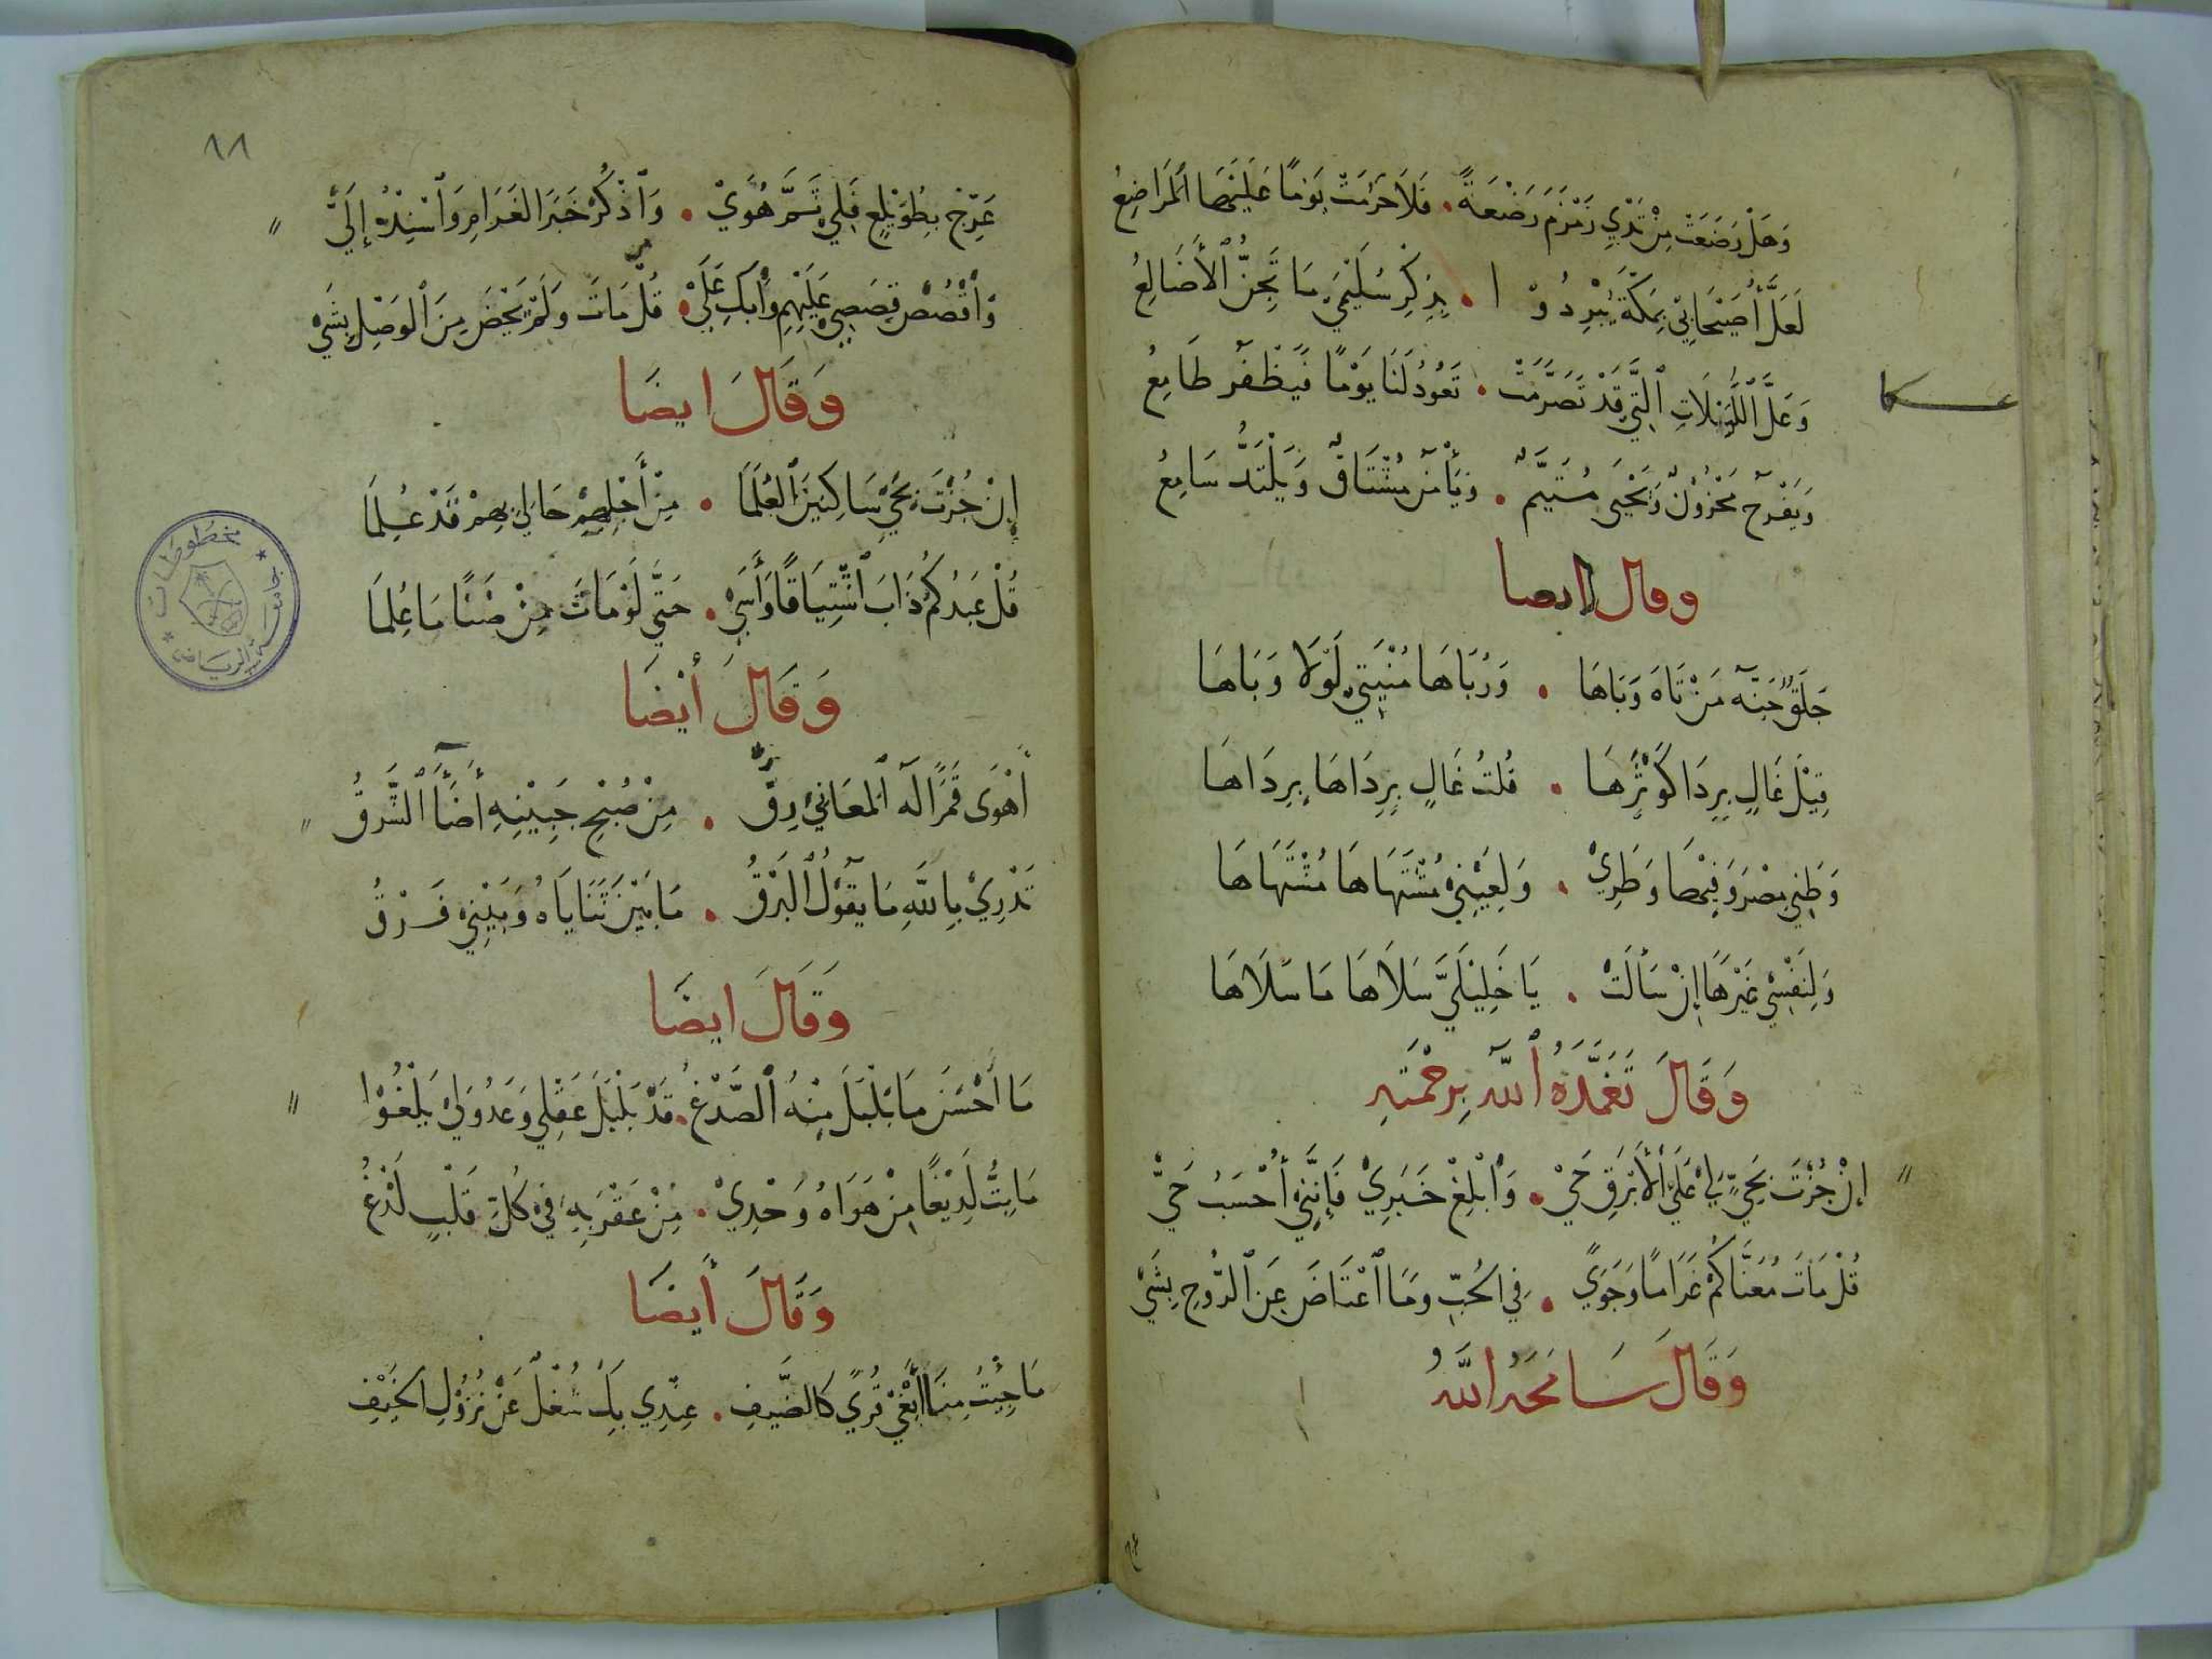 وَهَلْ رَضَعَتْ مِنْ ثَدْيِ زَمْزَمَ رَضْعَةً . فَلَا حَرُمَتْ يَوْمًا عَلَيْهَا الْمَرَاضِعُ
لَعَلَّ أُصَيْحَابِيْ بِمَكَّةَ يُبْرِدُوْا . بِذِكْرِ سُلَيْمَي مَا تُجِنُّ الْأَضَالِعُ
وَعَلَّ اللُّيَيْلَاتِ الَّتِي قَدْ تَصَرَّمَتْ . تَعُودُ لَنَا يَوْمًا فَيَظْفَرَ طَامِعُ
وَيَفْرَحَ مَحْزُوْنٌ وَيَحْيَى مُتَيَّمٌ . وَيَأْمَنَ مُشْتَاقٌ وَيَلْتَذَّ سَامِعُ
وقال ايضا
جِلَّقٌ جَنَّةُ مَنْ تَاهَ وَبَاهَا . وَرُبَاهَا مُنْيَتِي لَوْلَا وَبَاهَا
قِيْلَ غَالٍ بِرِدَا كَوْثَرِهَا . قُلْتُ غَالٍ بِرِدَاهَا بِرِدَاهَا
وَطَنِي مِصْرَ وَفِيْهَا وَطَرِيْ . وَلِعَيْنِيْ مُشْتَهَاهَا مُشْتَهَاهَا
وَلِنَفْسِي غَيْرَهَا إِنْ سَأَلَتْ . يَا خَلِيْلَيَّ سَلَاهَا مَا سَلَاهَا
وَقَالَ تَغَمَّدَهُ اللّٰهُ بِرَحْمَتِهِ
إنْ جُزْتَ بِحَيٍّ لِيْ عَلَي الْأَبْرَقِ حَيْ . وَابْلِغْ خَبَرِيْ فَإِنَّنِيْ أُحْسَبُ حَيْ
قُلْ مَاتَ مُعَنَّاكُمْ غَرَامًا وَجَوًي . فِي الحُبِّ وَمَا اعْتَاضَ عَنِ الرُّوحِ بِشَيْ
وَقَالَ سَامَحَهُ اللّٰهُ
٨٨
عَرِّجْ بِطُوَيْلِعٍ فَلِيْ ثَمَّ هُوَيْ . وَاذْكُرْ خَبَرَ الغَرَامِ وَاسْنِدْهُ إِلَيَّ
وَاقْصُصْ قِصَصِيْ عَلَيْهِمِ وَابْكِ عَلَيْ . قُلْ مَاتَ وَلَمْ يَحْضَ مِنَ الْوَصْلِ بِشَيْ
وَقَالَ ايضَا
إِنْ جُزْتَ بِحَيِّ سَاكِنِيْنَ الْعَلَمَا . مِنْ أَجْلِهِمْ حَالِيْ بِهِمْ قَدْ عُلِمَا
قُلْ عَبْدُكُمْ ذَابَ اشْتِيَاقًا وَأَسَي . حَتَّي لَوْ مَاتَ مِنْ ضَنًا مَا عُلِمَا
وَقَالَ أَيْضَا
أَهْوَى قَمَرًا لَهُ الْمَعَانِيْ رِقُّ . مِنْ صُبْحِ جَبِيْنِهِ أَضَآءَ الشَّرْقُ
تَدْرِيْ بِاللّٰهِ مَا يَقُوْلُ الْبَرْقُ . مَا بَيْنَ ثَنَايَاهُ وَبَيْنِيْ فَرْقُ
وَقَالَ ايضَا
مَا أَحْسَنَ مَا بَلْبَلَ مِنْهُ الصُّدْغُ . قَدْ بَلْبَلَ عَقْلِي وَعَدُوَلِيْ يَلْغُوْا
مَا بِتُّ لَدِيْغًا مِنْ هَوَاهُ وَحْدِيْ . مِنْ عَقْرَبِهِ فِيْ كُلِّ قَلْبٍ لَدْغُ
وَقَالَ أَيضَا
مَا جِيْتُ مِنًا أَبْغِيْ قُرًي كَالضَّيْفِ . عِنْدِي بِكَ شُغْلٌ عَنْ نُزُوْلِ الخَيْفِ
مخطوطات
جامعة الرياض